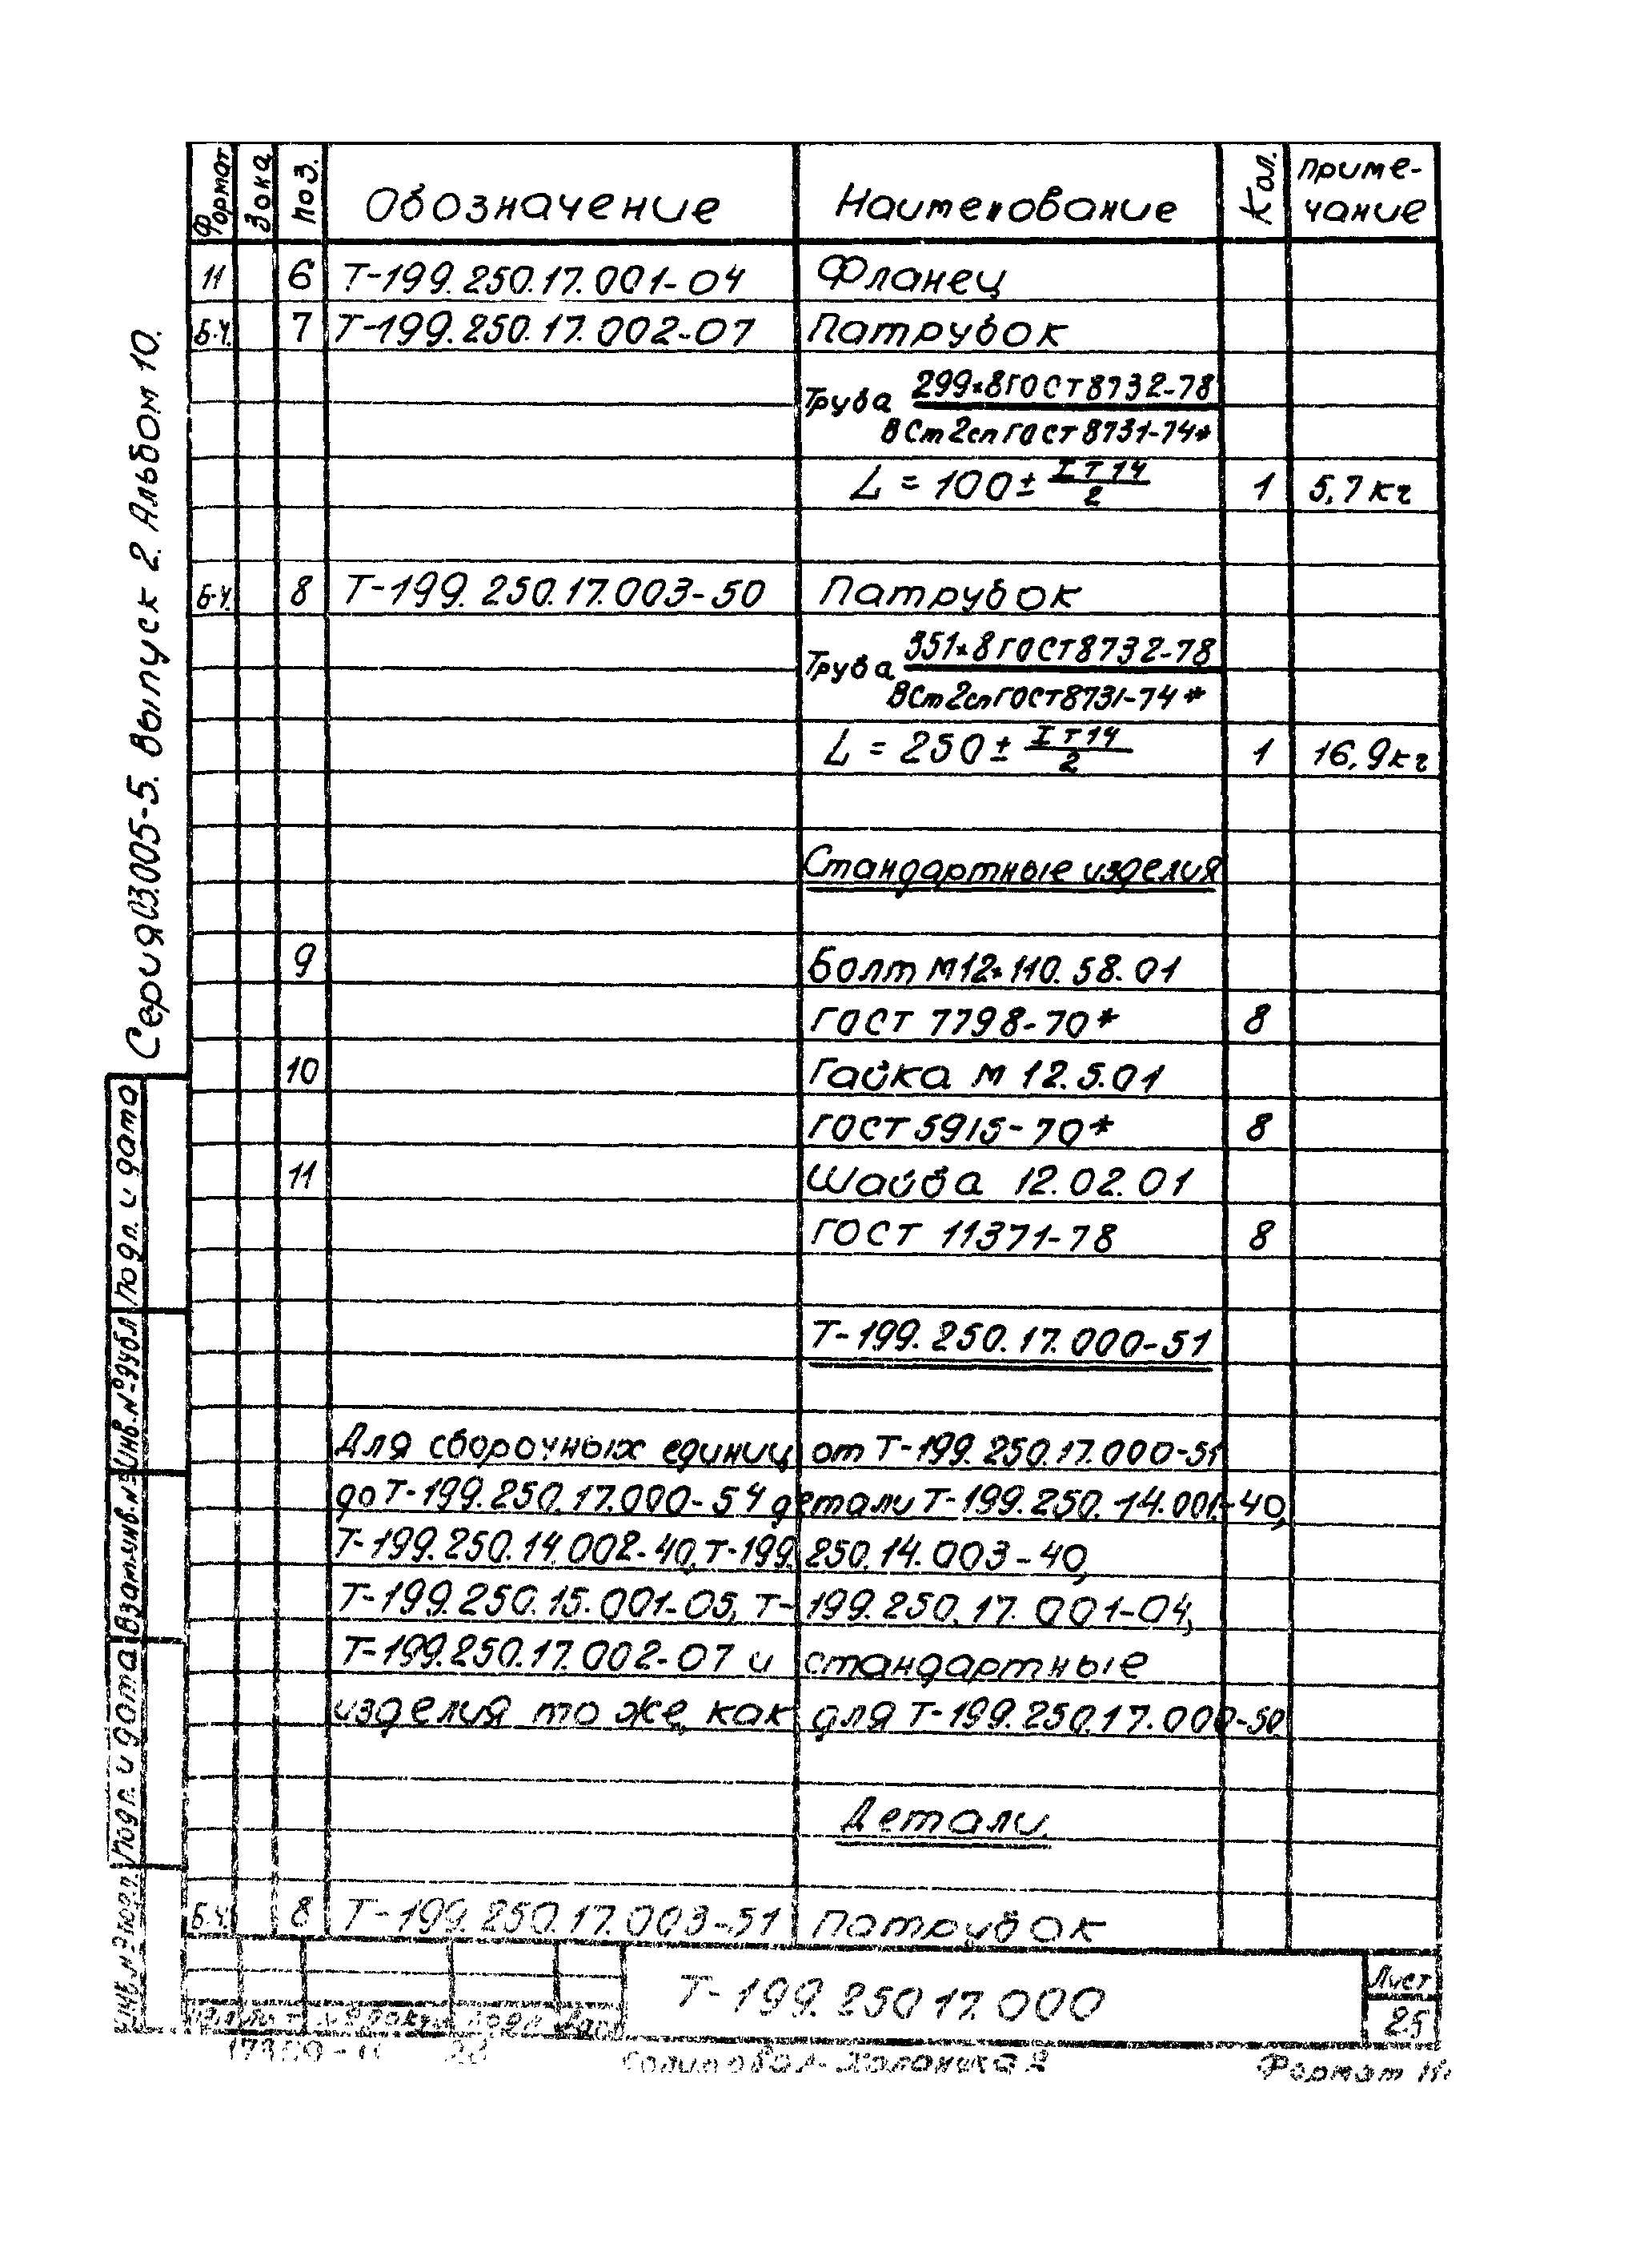 Формат Зона Поз. Обозначение Наименование Кол. Приме-
чание
11 6 Т-199.250.17.001-04 Фланец
Б.Ч. 7 Т-199.250.17.002-07 Патрубок
Труба 299×8 ГОСТ 8732-78
ВСт2сп ГОСТ 8731-74*
L = 100 ± IT14/2 1 5,7 кг
Б.Ч. 8 Т-199.250.17.003-50 Патрубок
Труба 351×8 ГОСТ 8732-78
ВСт2сп ГОСТ 8731-74*
L = 250 ± IT14/2 1 16,9 кг
Стандартные изделия
9 Болт М12×110.58.01
ГОСТ 7798-70* 8
10 Гайка М 12.5.01
ГОСТ 5915-70* 8
11 Шайба 12.02.01
ГОСТ 11371-78 8
Т-199.250.17.000-51
Для сборочных единиц от Т-199.250.17.000-51
до Т-199.250.17.000-54 детали Т-199.250.14.001-40,
Т-199.250.14.002-40, Т-199.250.14.003-40,
Т-199.250.15.001-05, Т-199.250.17.001-04,
Т-199.250.17.002-07 и стандартные
изделия то же, как для Т-199.250.17.000-50
Детали
Б.Ч. 8 Т-199.250.17.003-51 Патрубок
Т-199.250 17.000
Лист
25
Копировал- Формат 11
Серия 03.005-5. Выпуск 2. Альбом 10.
Подп. и дата
Инв. № дубл
Взам. инв. №
Подп. и дата
Инв. № подл.